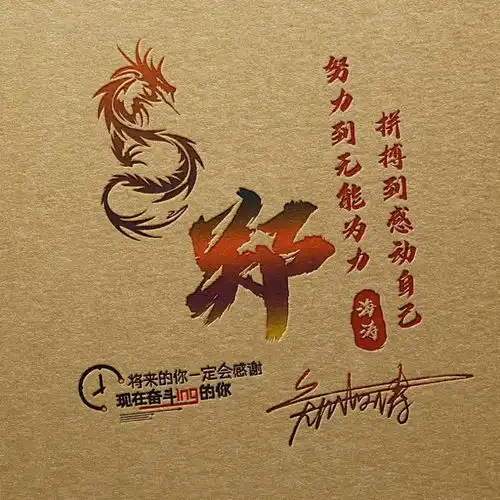 努力到无能为力
拼搏到感动自己
海涛
将来的你一定会感谢
现在奋斗ing的你